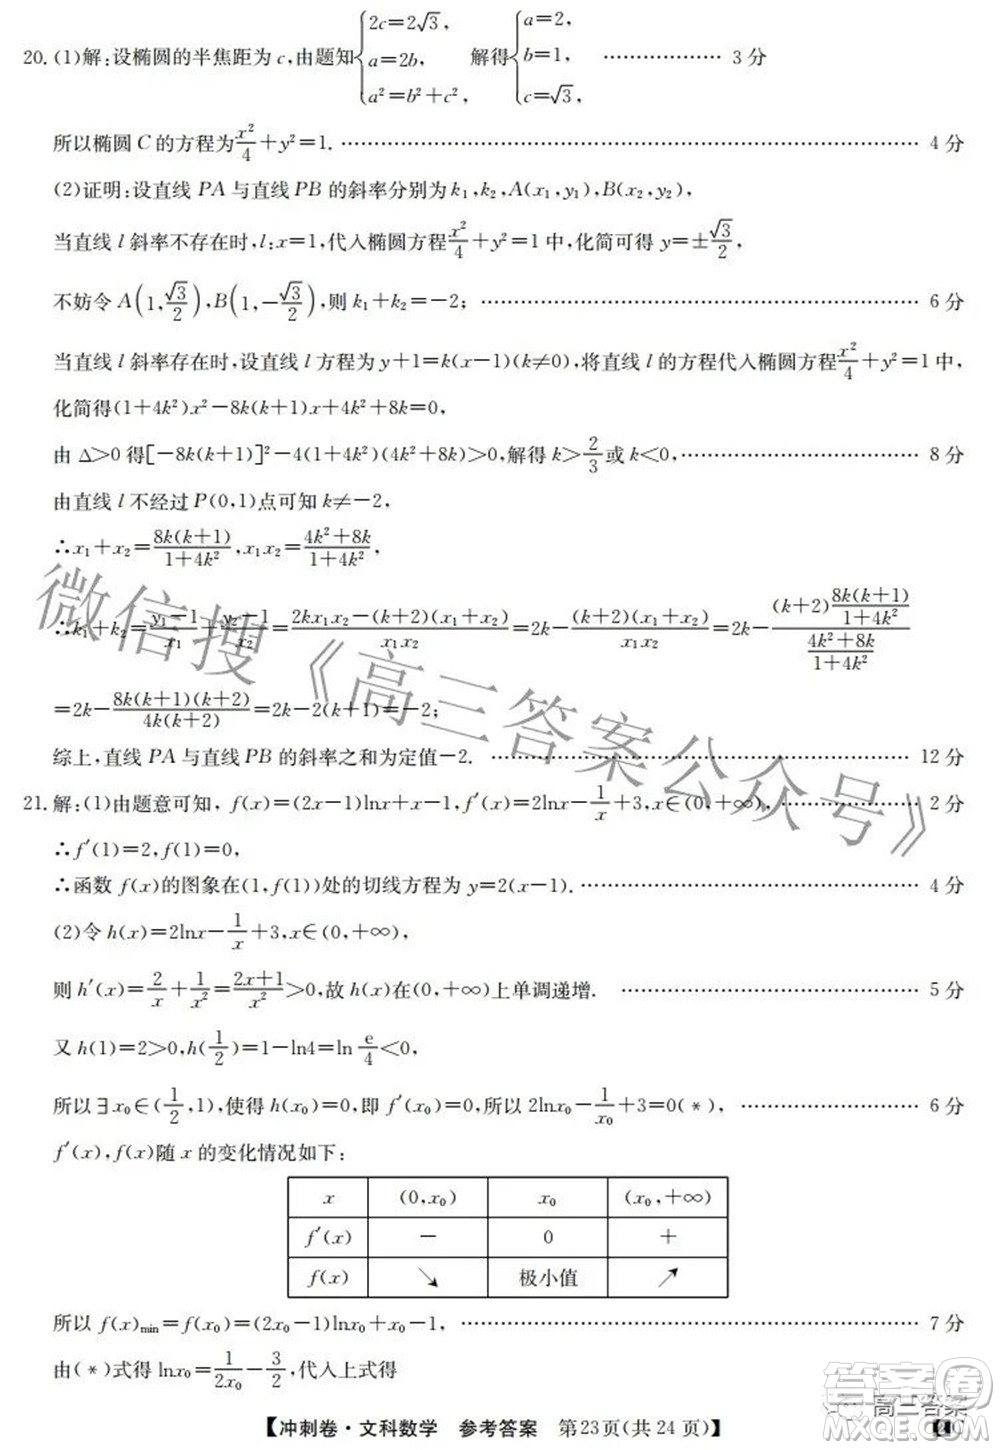 20.(1)解:设椭圆的半焦距为c,由题知{2c=2√3, a=2b, a²=b²+c², 解得{a=2, b=1, c=√3, ……………… 3分
所以椭圆C的方程为x²/4+y²=1. ……………… 4分
(2)证明:设直线PA与直线PB的斜率分别为k₁,k₂,A(x₁,y₁),B(x₂,y₂),
当直线l斜率不存在时,l:x=1,代入椭圆方程x²/4+y²=1中,化简可得y=±√3/2,
不妨令A(1,√3/2),B(1,-√3/2),则k₁+k₂=-2; ……………… 6分
当直线l斜率存在时,设直线l方程为y+1=k(x-1)(k≠0),将直线l的方程代入椭圆方程x²/4+y²=1中,
化简得(1+4k²)x²-8k(k+1)x+4k²+8k=0,
由Δ>0得[-8k(k+1)]²-4(1+4k²)(4k²+8k)>0,解得k>2/3或k<0, ……………… 8分
由直线l不经过P(0,1)点可知k≠-2,
∴x₁+x₂=8k(k+1)/(1+4k²),x₁x₂=(4k²+8k)/(1+4k²),
∴k₁+k₂=(y₁-1)/x₁+(y₂-1)/x₂=(2kx₁x₂-(k+2)(x₁+x₂))/(x₁x₂)=2k-((k+2)(x₁+x₂))/(x₁x₂)=2k-((k+2)8k(k+1)/(1+4k²))/((4k²+8k)/(1+4k²))
=2k-8k(k+1)(k+2)/(4k(k+2))=2k-2(k+1)=-2;
综上,直线PA与直线PB的斜率之和为定值-2. ……………… 12分
21.解:(1)由题意可知,f(x)=(2x-1)lnx+x-1,f′(x)=2lnx-1/x+3,x∈(0,+∞), ……………… 2分
∴f′(1)=2,f(1)=0,
∴函数f(x)的图象在(1,f(1))处的切线方程为y=2(x-1). ……………… 4分
(2)令h(x)=2lnx-1/x+3,x∈(0,+∞),
则h′(x)=2/x+1/x²=(2x+1)/x²>0,故h(x)在(0,+∞)上单调递增. ……………… 5分
又h(1)=2>0,h(1/2)=1-ln4=ln e/4<0,
所以∃x₀∈(1/2,1),使得h(x₀)=0,即f′(x₀)=0,所以2lnx₀-1/x₀+3=0(*), ……………… 6分
f′(x),f(x)随x的变化情况如下:
x (0,x₀) x₀ (x₀,+∞)
f′(x) - 0 +
f(x) ↘ 极小值 ↗
所以f(x)min=f(x₀)=(2x₀-1)lnx₀+x₀-1, ……………… 7分
由(*)式得lnx₀=1/(2x₀)-3/2,代入上式得
【冲刺卷·文科数学 参考答案 第23页(共24页)】
微信搜《高三答案公众号》
高三答案
答案圈